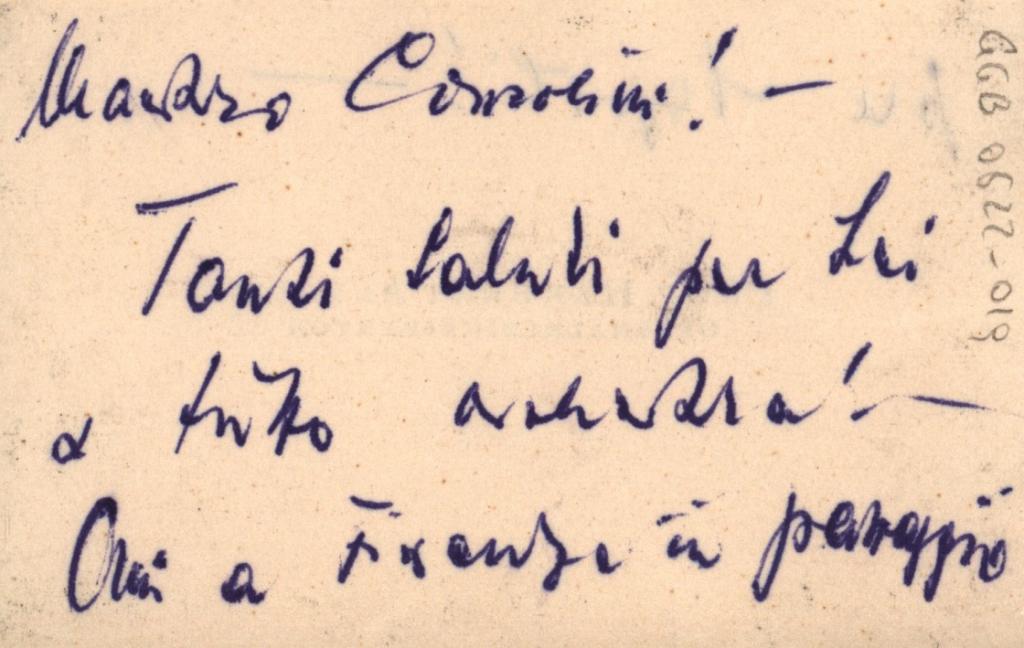 Maestro Consolini! —
Tanti Saluti per Lei
e tutto orchestra! —
Qui a Firenze in passaggio
GGB 0622-019